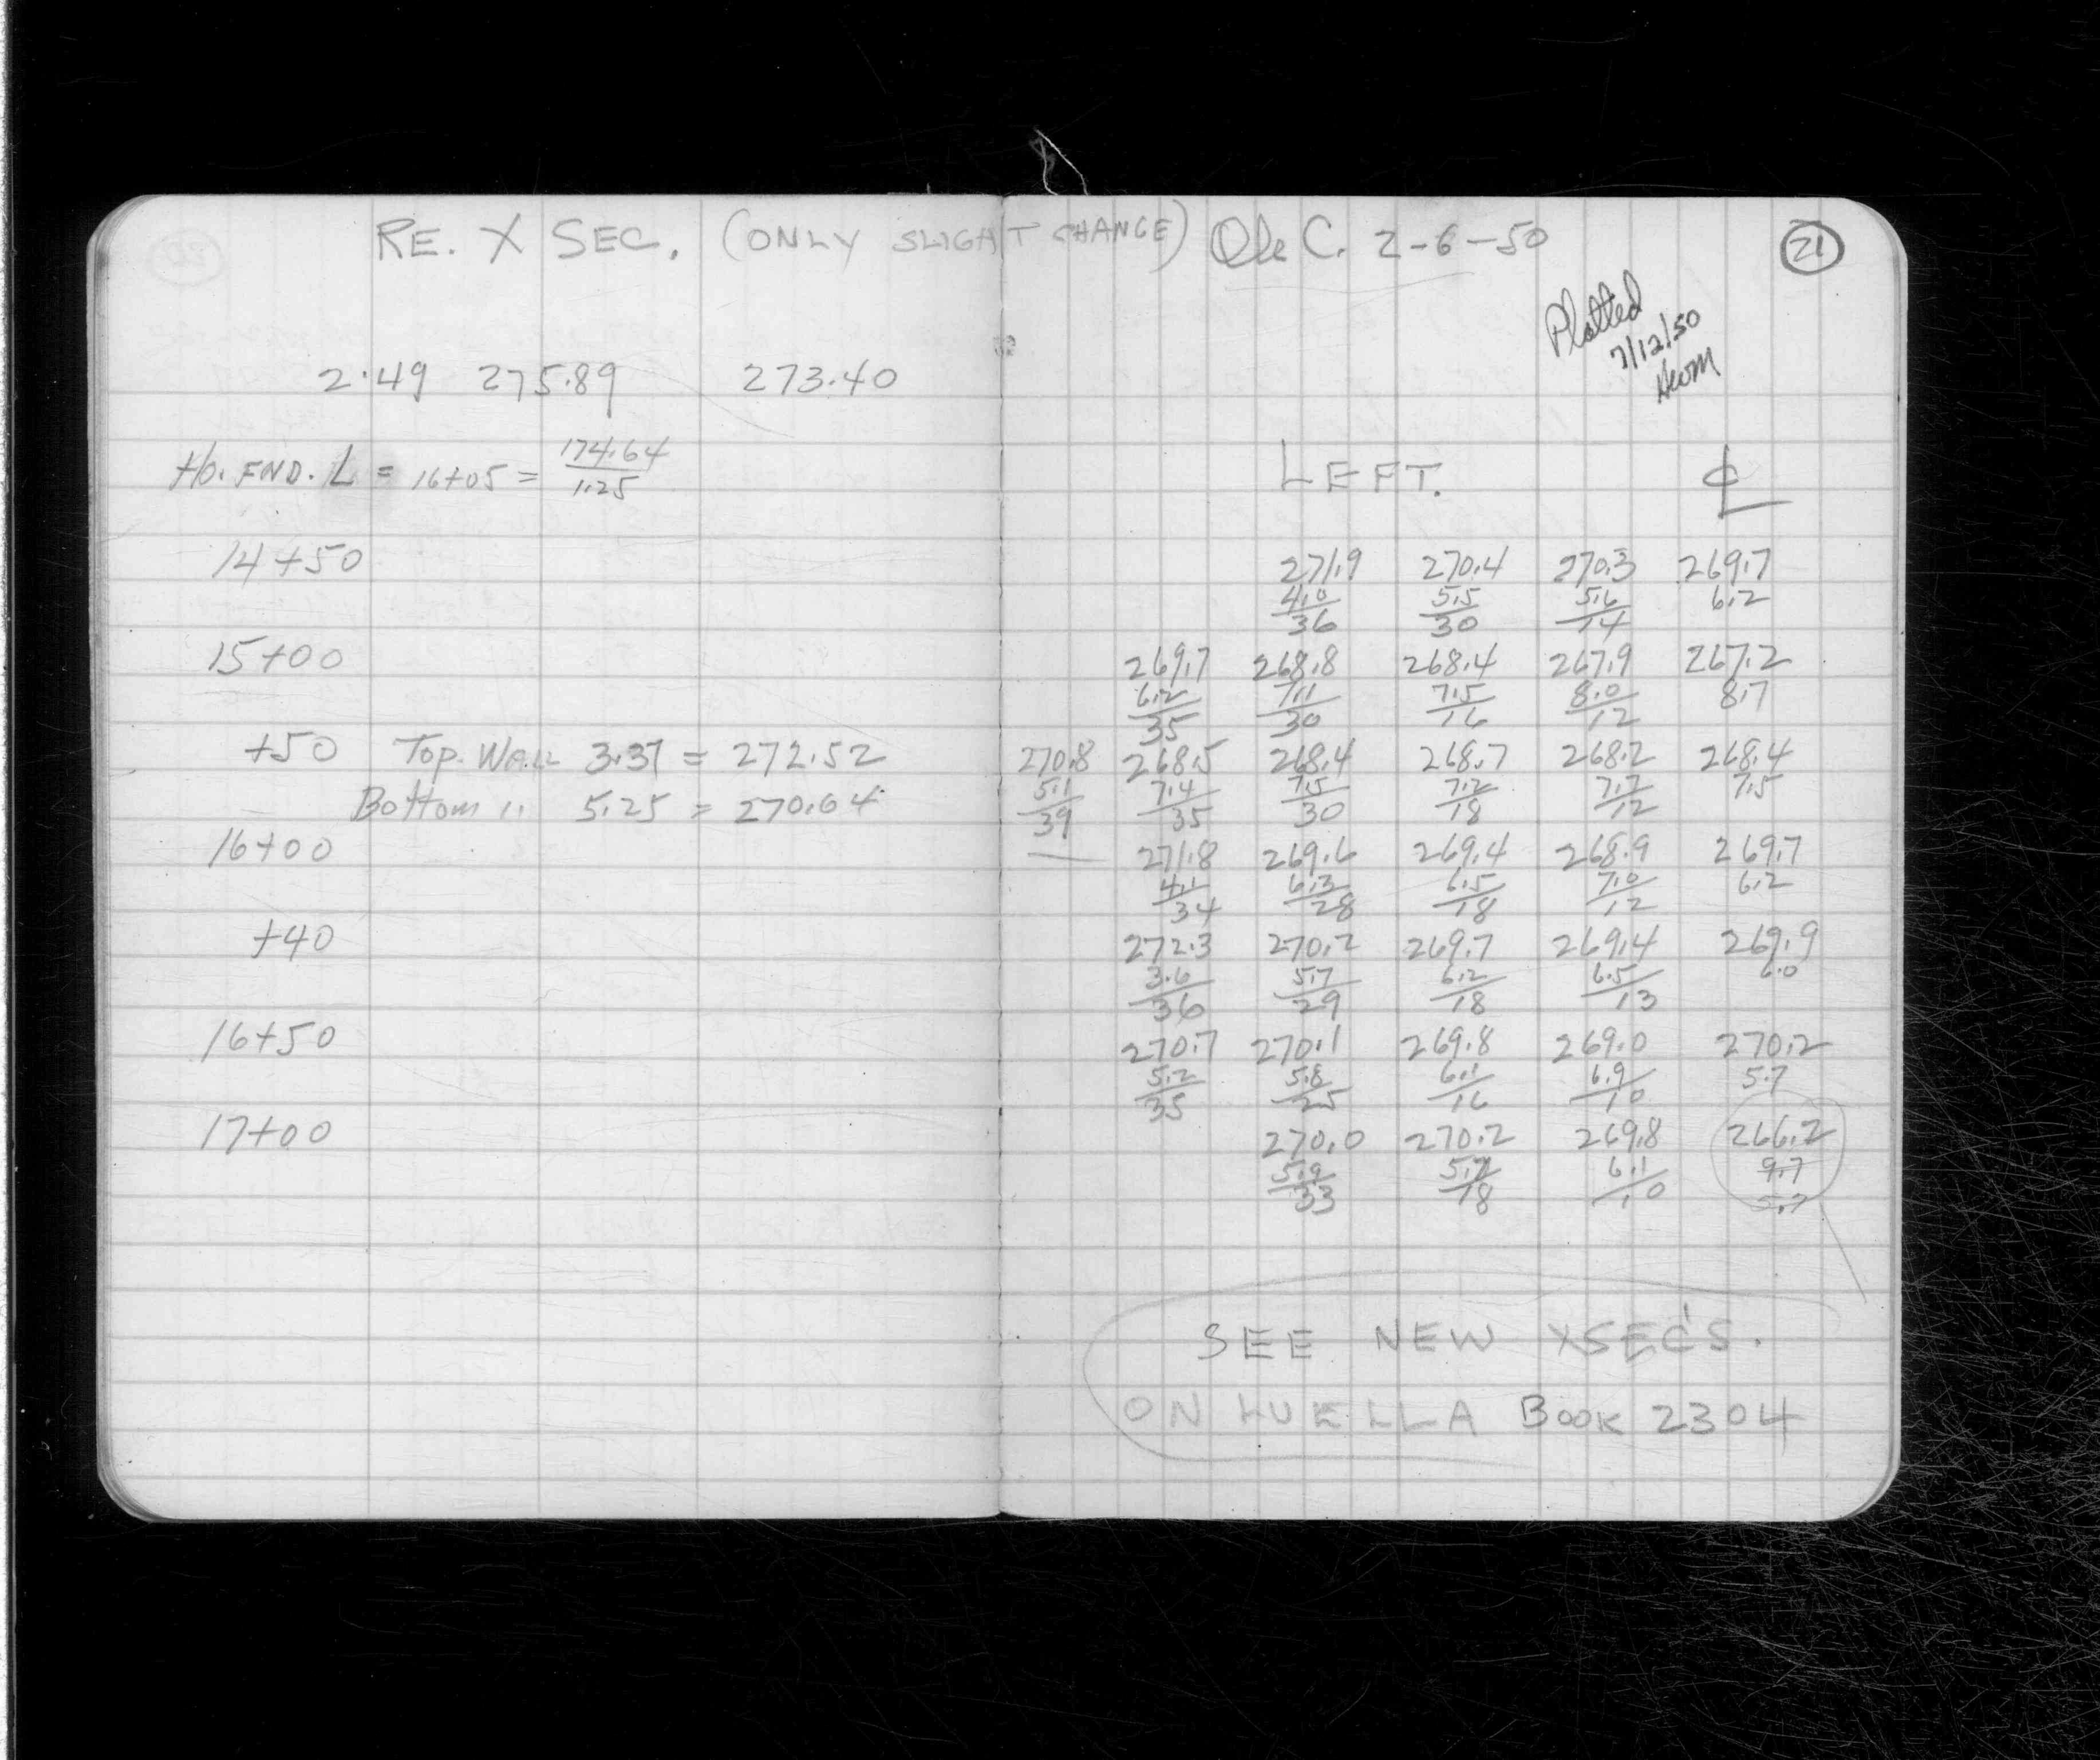 RE. X SEC. (ONLY SLIGHT CHANGE) Ole C. 2-6-50 21
Plotted
7/12/50
2.49 275.89 273.40
Ho. FND. L = 16+05 = 174.64 / 1.25
LEFT. ℄
14+50 271.9 270.4 270.3 269.7
4.0/36 5.5/30 5.6/14 6.2
15+00 269.7 268.8 268.4 267.9 267.2
6.2/35 7.1/30 7.5/16 8.0/12 8.7
+50 Top. Wall 3.37 = 272.52 270.8 268.5 268.4 268.7 268.2 268.4
Bottom " 5.25 = 270.64 5.1/39 7.4/35 7.5/30 7.2/18 7.7/12 7.5
16+00 — 271.8 269.6 269.4 268.9 269.7
4.1/34 6.3/28 6.5/18 7.0/12 6.2
+40 272.3 270.2 269.7 269.4 269.9
3.6/36 5.7/29 6.2/18 6.5/13 6.0
16+50 270.7 270.1 269.8 269.0 270.2
5.2/35 5.8/25 6.1/16 6.9/10 5.7
17+00 270.0 270.2 269.8 266.2
5.9/33 5.7/18 6.1/10 9.7
5.7
SEE NEW XSEC'S.
ON LUELLA BOOK 2304